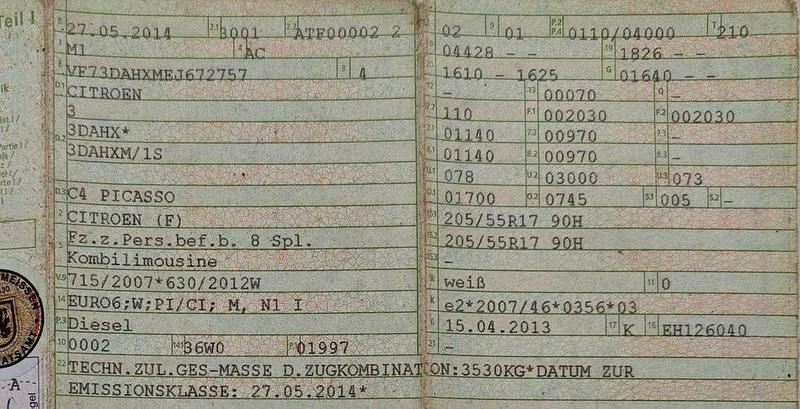 Teil I
B 27.05.2014 2.1 3001 2.2 ATF00002 2
J M1 4 AC
E VF73DAHXMEJ672757 3 4
D.1 CITROEN
3
D.2 3DAHX*
3DAHXM/1S
D.3 C4 PICASSO
2 CITROEN (F)
5 Fz.z.Pers.bef.b. 8 Spl.
Kombilimousine
V.9 715/2007*630/2012W
14 EURO6;W;PI/CI; M, N1 I
P.3 Diesel
10 0002 14.1 36W0 P.1 01997
22 TECHN.ZUL.GES-MASSE D.ZUGKOMBINATION:3530KG*DATUM ZUR
EMISSIONSKLASSE: 27.05.2014*
02 9 01 P.2 P.4 0110/04000 T 210
18 04428 - - 19 1826 - -
20 1610 - 1625 G 01640 - -
12 - 13 00070 Q -
V.7 110 F.1 002030 F.2 002030
7.1 01140 7.2 00970 7.3 -
8.1 01140 8.2 00970 8.3 -
U.1 078 U.2 03000 U.3 073
O.1 01700 O.2 0745 S.1 005 S.2 -
15.1 205/55R17 90H
15.2 205/55R17 90H
15.3 -
R weiß 11 0
K e2*2007/46*0356*03
6 15.04.2013 17 K 16 EH126040
21 -
MEISSEN
A